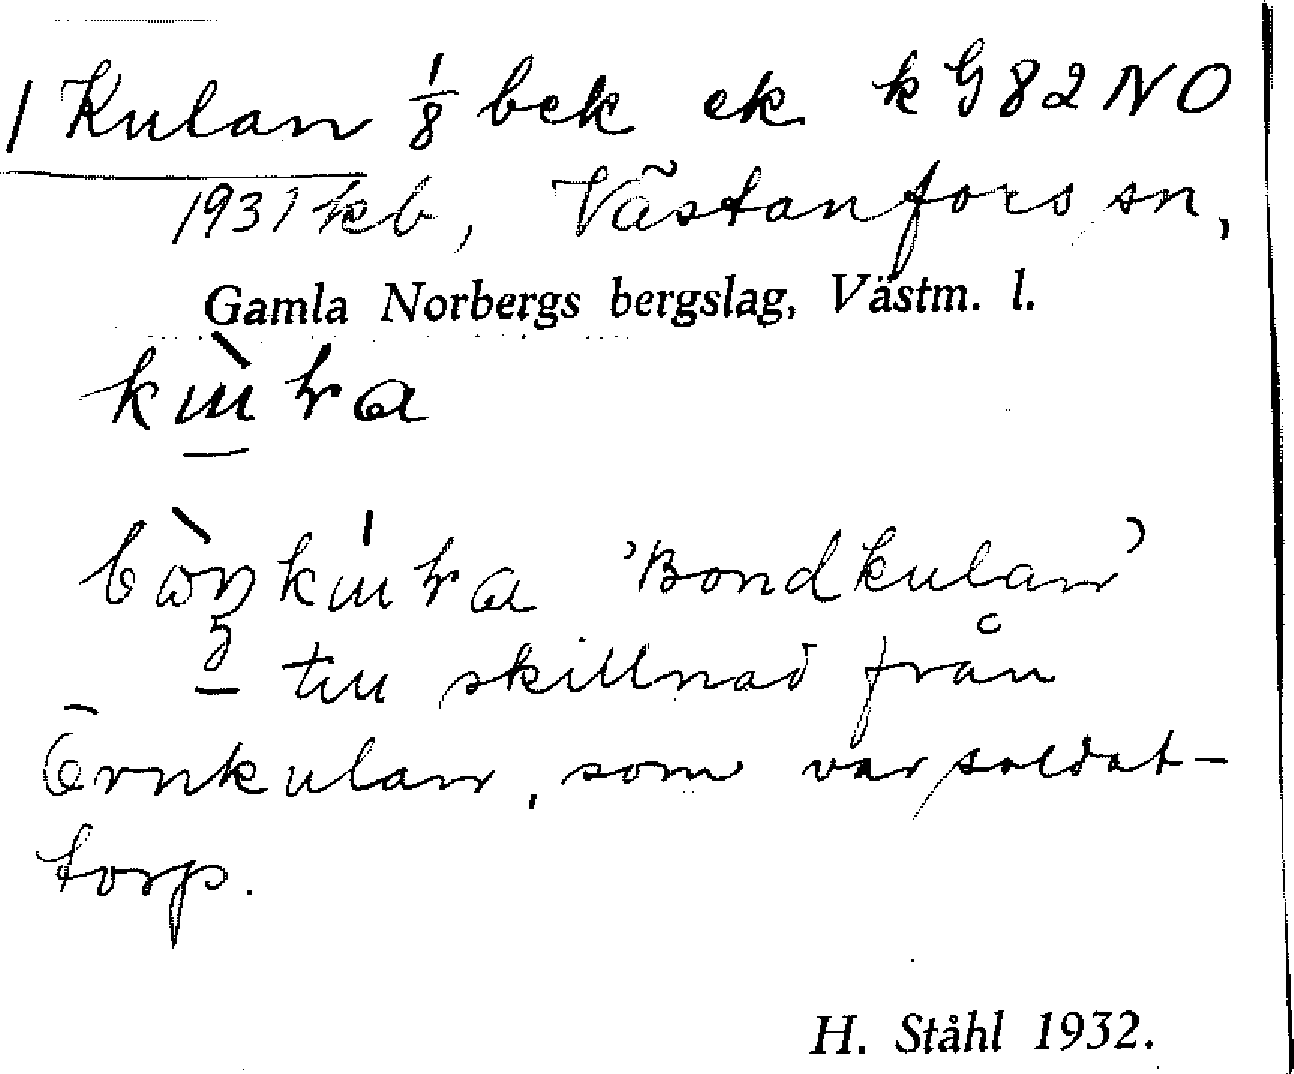 1 Kulan 1/8 bek ek k G 82 NO
1931 kb, Västanfors sn,
Gamla Norbergs bergslag, Västm. l.
'Bondkulan'
till skillnad från
Örnkulan, som var soldat-
torp.
H. Ståhl 1932.